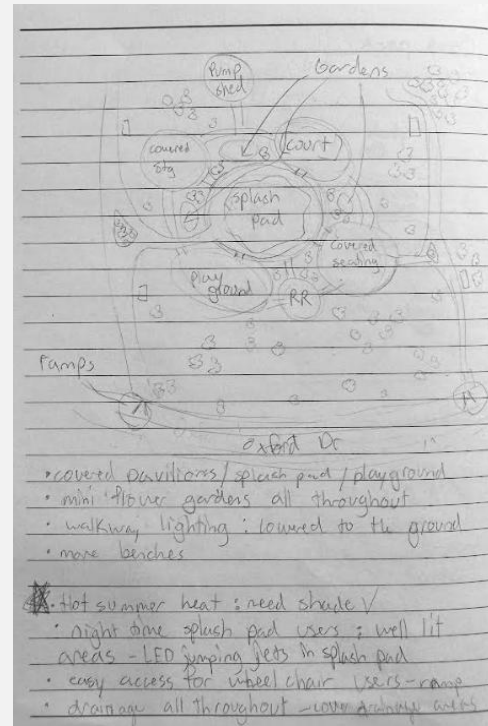 Pump
shed
Gardens
covered
stg
court
splash
pad
covered
seating
play
ground
RR
ramps
Oxford Dr
• covered pavilions / splash pad / playground
• mini flower gardens all throughout
• walkway lighting : lowered to the ground
• more benches
• Hot summer heat : need shade √
• night time splash pad users ; well lit
areas - LED jumping jets in splash pad
• easy access for wheel chair users - ramp
• drainage all throughout - cover drainage areas